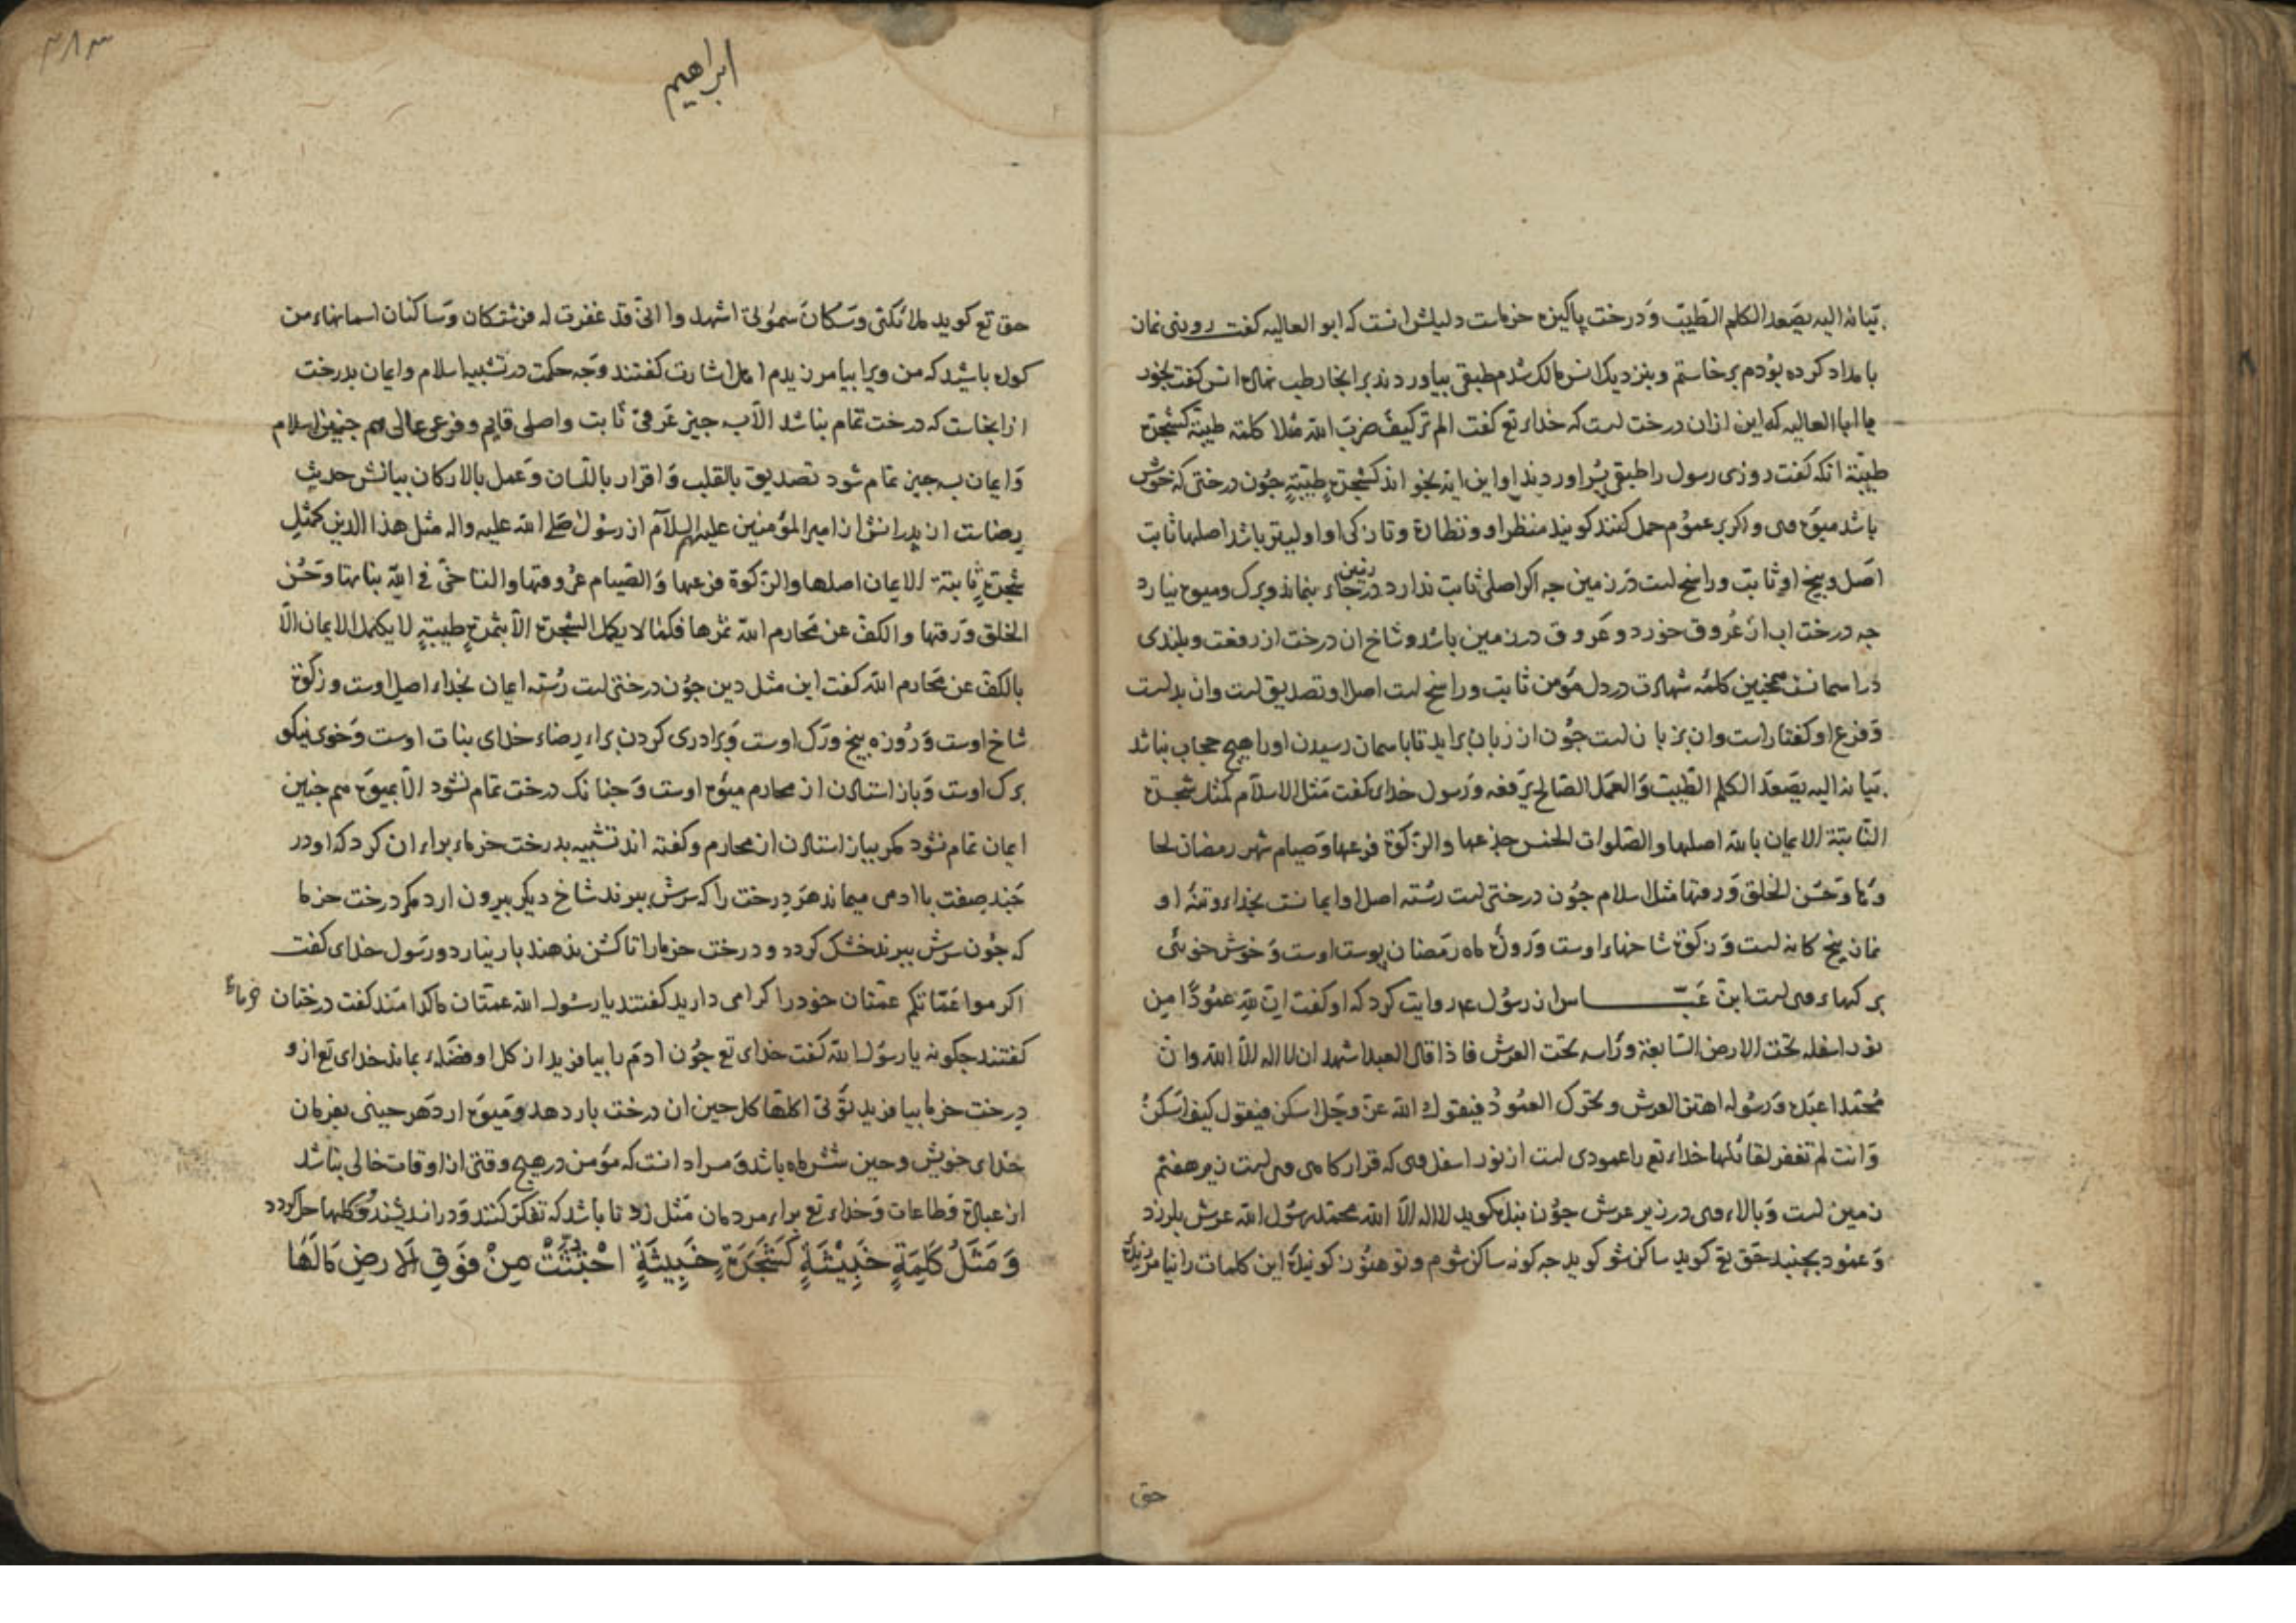 بیانه الیه یصعد الکلم الطیب و درخت پاکیزه خرماست دلیلش انست که ابو العالیه کفت روزی نماز
بامداد کرده بودم برخاستم و بنزدیک انس مالک شدم طبقی بیاوردند بر انجا رطب نهاده انس کفت بخور
یا ابا العالیه که این ازان درخت است که خداء تع کفت الم تر کیف ضرب الله مثلا کلمة طیبة کشجرة
طیبة انکه کفت روزی رسول را طبقی بسر اوردند او این ایه بخواند کشجرة طیبة جون درختی که خوش
باشد میوه وی و اکر بر عموم حمل کنند کویند منظر او و نظارة و تازکی او اولیتر باشد اصلها ثابت
اصل و بیخ او ثابت و راسخ است در زمین جه اکر اصلی ثابت ندارد در زمین بر جاء بنماند و برک و میوه نیارد
جه درخت اب از عروق خورد و عروق در زمین باشد و شاخ ان درخت از رفعت و بلندی
در اسمانست همجنین کلمه شهادت در دل مؤمن ثابت و راسخ است اصل او تصدیق است وان بدلست
و فرع او کفتار است وان بزبان است جون از زبان براید تا باسمان رسیدن او را هیج حجاب نباشد
بیانه الیه یصعد الکلم الطیب والعمل الصالح یرفعه و رسول خدای کفت مثل الاسلام کمثل شجرة
الثابتة الایمان بالله اصلها والصلوات الخمس جذعها والزکوة فرعها وصیام شهر رمضان لحا
وها وحسن الخلق ورقها مثل اسلام جون درختی است رسته اصل او ایمانست بخداء و تنه او
نماز پنج کانه است و زکوة شاخهاء اوست و روزه ماه رمضان پوست اوست و خوش خوئی
برکهاء وی است ابن عباس از رسول ع روایت کرد که او کفت ان لله عمودا من
نور اسفله تحت الارض السابعة وراسه تحت العرش فاذا قال العبد اشهد ان لا اله الا الله وان
محمدا عبده ورسوله اهتز العرش وتحرک العمود فیقول الله عز وجل اسکن فیقول کیف اسکن
وانت لم تغفر لقائلها خداء تع را عمودی است از نور اسفل وی که قرارکاه وی است زیر هفتم
زمین است و بالاء وی در زیر عرش جون بنده کوید لا اله الا الله محمد رسول الله عرش بلرزد
و عمود بجنبد حق تع کوید ساکن شو کوید جه کونه ساکن شوم و تو هنوز کوینده این کلمات را نیامرزیده
حق
٣٨٣
ابراهیم
حق تع کوید ملائکتی وسکان سمواتی اشهدوا انی قد غفرت له فرشتکان و ساکنان اسمانهاء من
کواه باشید که من ویرا بیامرزیدم اهل اشارت کفتند وجه حکمت در تشبیه اسلام وایمان بدرخت
از انجاست که درخت تمام نباشد الا بسه جیز عرقی ثابت واصلی قایم وفرعی عالی هم جنین اسلام
وایمان بسه جیز تمام شود تصدیق بالقلب واقرار باللسان وعمل بالارکان بیانش حدیث
رضاست از پدرانش از امیر المؤمنین علیهم السلام از رسول صلی الله علیه واله مثل هذا الدین کمثل
شجرة ثابتة الایمان اصلها والزکوة فرعها والصیام عروقها والتاخی فی الله نباتها وحسن
الخلق ورقها والکف عن محارم الله ثمرها فکما لا یکمل الشجرة الا بثمرة طیبة لا یکمل الایمان الا
بالکف عن محارم الله کفت این مثل دین جون درختی است رسته ایمان بخداء اصل اوست و زکوة
شاخ اوست و روزه بیخ و رک اوست و برادری کردن براء رضاء خدای نبات اوست و خوی نیکو
برک اوست و باز استادن از محارم میوه اوست و جنانک درخت تمام نشود الا بمیوه هم جنین
ایمان تمام نشود مکر بباز استادن از محارم و کفته اند تشبیه بدرخت خرماء براء ان کرد که او در
جند صفت باادمی میماند هر درخت را که سرش ببرند شاخ دیکر بیرون ارد مکر درخت خرما
که جون سرش ببرند خشک کردد و درخت خرما را تا کشن ندهند بار نیارد و رسول خدای کفت
اکرموا عماتکم عمتان خود را کرامی دارید کفتند یا رسول الله عمتان ما کدامند کفت درختان خرما
کفتند جکونه یا رسول الله کفت خدای تع جون ادم را بیافرید از کل او فضله بماند خدای تع ازو
درخت خرما بیافرید تؤتی اکلها کل حین ان درخت بار دهد و میوه ارد هر حینی بفرمان
خدای خویش و حین شش ماه باشد و مراد انست که مؤمن در هیج وقتی از اوقات خالی نباشد
از عبادة و طاعات و خداء تع براء مردمان مثل زد تا باشد که تفکر کنند و در اندیشند
وَمَثَلُ كَلِمَةٍ خَبِيْثَةٍ كَشَجَرَةٍ خَبِيثَةٍ اجْتُثَّتْ مِنْ فَوْقِ الَارضِ مَالَهَا